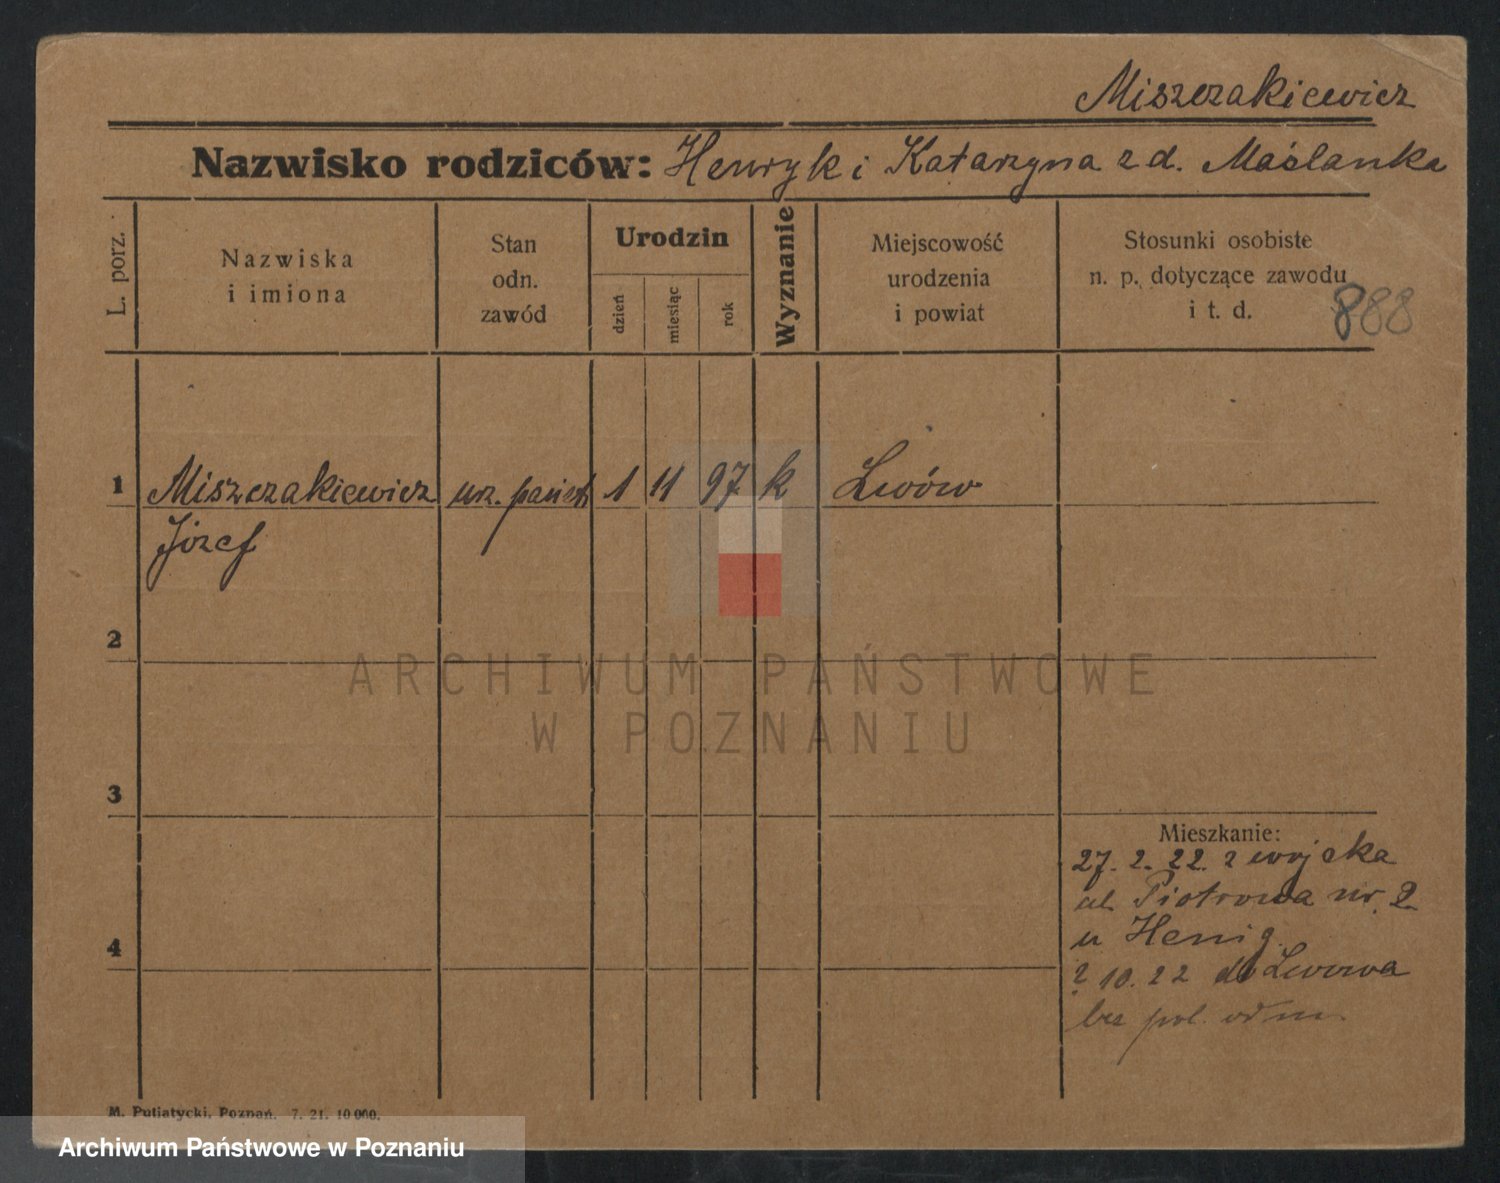 Miszczakiewicz
Nazwisko rodziców: Henryk i Katarzyna z d. Maślanka
L. porz.
Nazwiska
i imiona
Stan
odn.
zawód
Urodzin
dzień
miesiąc
rok
Wyznanie
Miejscowość
urodzenia
i powiat
Stosunki osobiste
n. p. dotyczące zawodu
i t. d.
888
1 Miszczakiewicz urz. państ. 1 11 97 k Lwów
Józef
2
3
4
Mieszkanie:
27. 2. 22. z wojska
ul. Piotrowa nr. 2
u Henig.
? 10. 22 do Lwowa
bez pol. odm.
M. Putiatycki, Poznań. 7. 21. 10 000.
ARCHIWUM PAŃSTWOWE
W POZNANIU
Archiwum Państwowe w Poznaniu